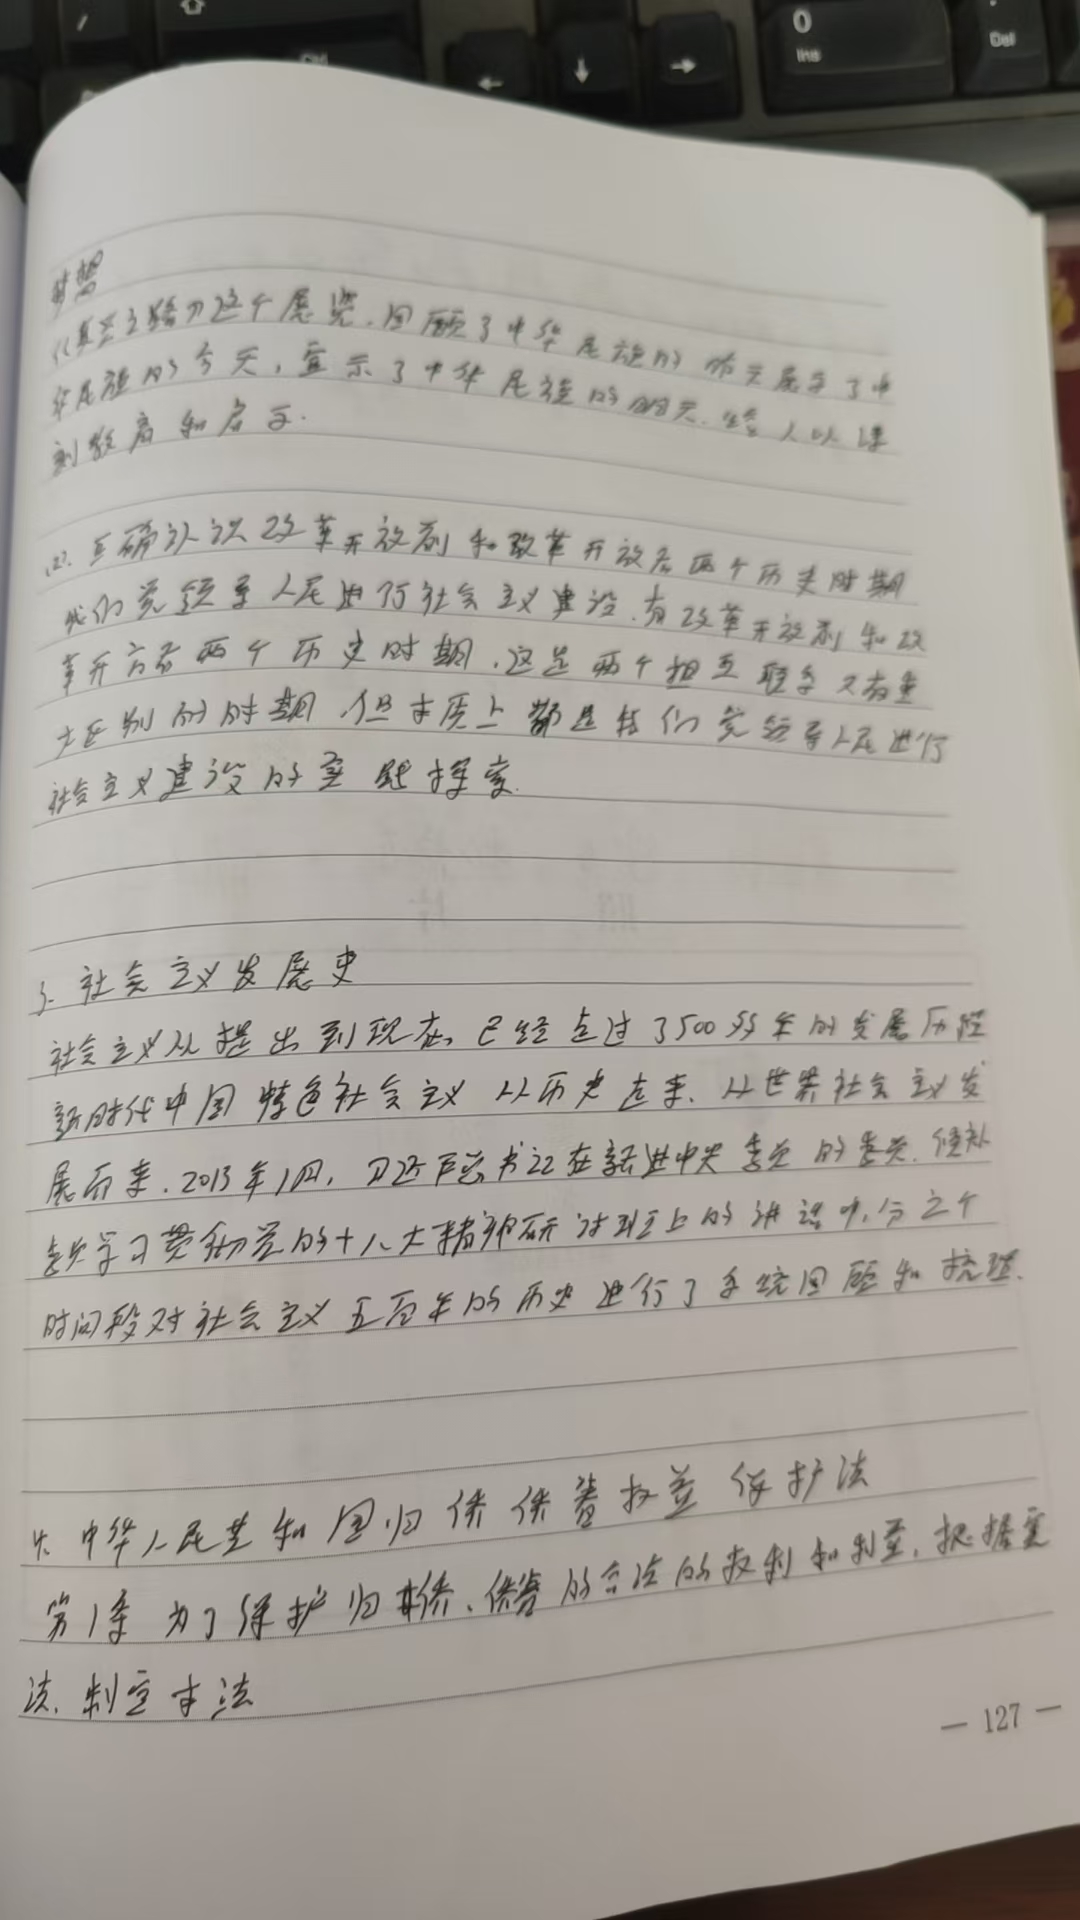 梦想
《复兴之路》这个展览.回顾了中华民族的昨天展示了中
华民族的今天,宣示了中华民族的明天.给人以深
刻教育和启示.
(2).正确认识改革开放前和改革开放后两个历史时期
我们党领导人民进行社会主义建设.有改革开放前和改
革开放后两个历史时期.这是两个相互联系又有重
大区别的时期.但本质上都是我们党领导人民进行
社会主义建设的实践探索.
3.社会主义发展史
社会主义从提出到现在,已经走过了500多年的发展历程
新时代中国特色社会主义从历史走来.从世界社会主义发
展而来.2013年1月,习近平总书记在新进中央委员的委员.候补
委员学习贯彻党的十八大精神研讨班上的讲话中,分六个
时间段对社会主义五百年的历史进行了系统回顾和梳理.
4.中华人民共和国归侨侨眷权益保护法
第1条 为了保护归侨、侨眷的合法的权利和利益,根据宪
法.制定本法
— 127 —
0
Ins
Del
Ctrl